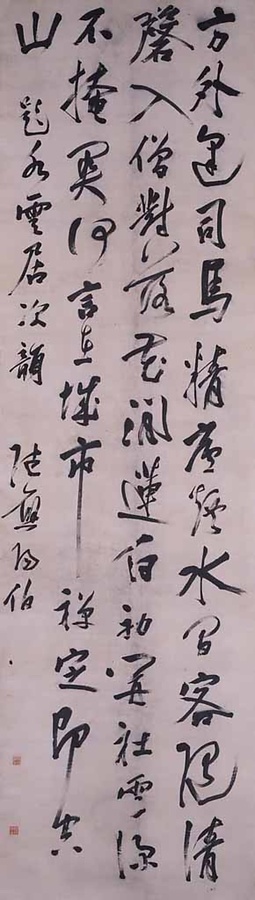 方外逢司馬精廬煙水間客隨清
磬入僧對落花閒蓮白初開社雲深
不掩關何言在城市禪定即空
山 題水雲居次韻 陸應陽